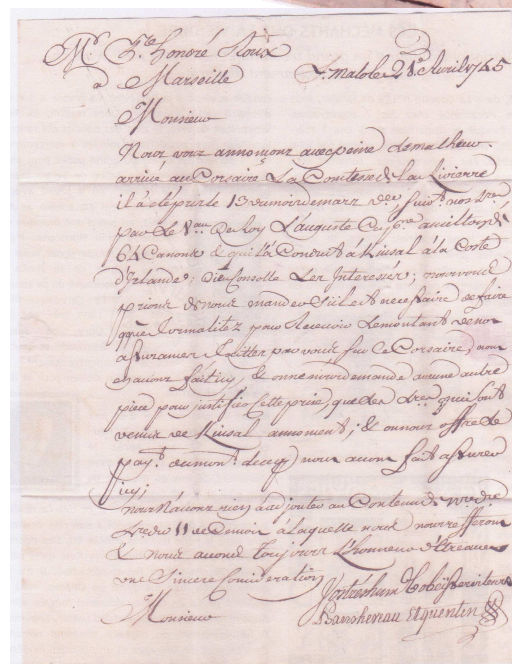 Mr. Hré. Honoré Roux
à Marseille St. malo le 28e. Avril 1745
Monsieur
Nous vous annonçons avec peine le malheur
arrivé au Corsaire La Comtesse de la Riviere
il a été pris le 13 du moir de marz
par le Vau. du Roy L'auguste
64 Canons & qui l'a Conduit à Kinsal à la Coste
d'Irlande; Dieu Console Les Interessez; nous vous
prions de nous mander s'il est necessaire de faire
qque formalitez pour Recevoir le montant de nos
assurances faittes par vous sur ce Corsaire, nous
en avons fait icy, & on ne nous demande aucune autre
piece pour justifier cette prise, que des qui sont
venus de Kinsal & on nous offre de
payt. du mont. de ce q nous avons fait assurer
icy;
nous n'avons rien à adjouter au Contenu de
du 11 à laquelle nous nous referons
& nous avons toujours l'honneur d'être avec
une Sincere Consideration
Monsieur
Vos très hum & obeïss serviteurs
Banchereau et quentin